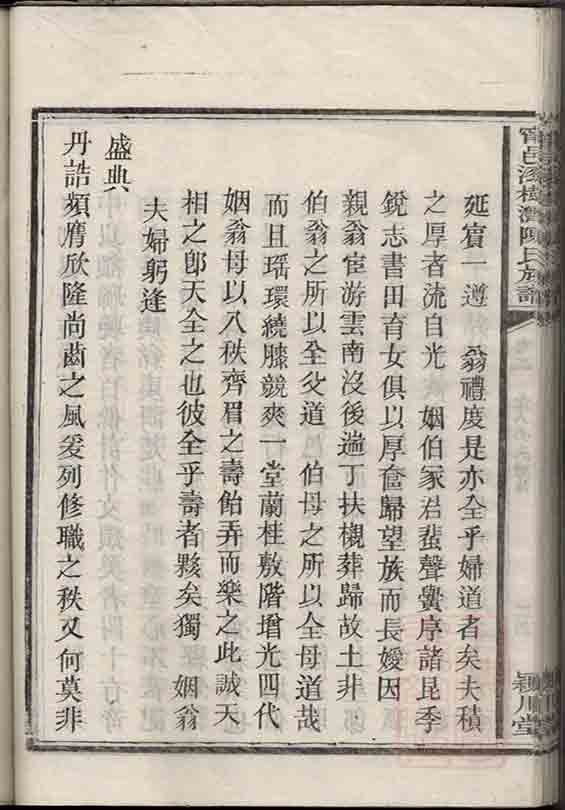 延賓一遵　翁禮度是亦全乎婦道者矣夫積
之厚者流自光　姻伯冢君蜚聲黌序諸昆季
銳志書田育女俱以厚奩歸望族而長嫒因
親翁宦游雲南沒後遄丁扶櫬葬歸故土非
伯翁之所以全父道　伯母之所以全母道哉
而且瑶環繞膝競爽一堂蘭桂敷階增光四代
姻翁母以八秩齊眉之壽飴弄而樂之此誠天
相之卽天全之也彼全乎壽者夥矣獨　姻翁
夫婦躬逢
盛典
丹誥頻膺欣隆尚齒之風爰列修職之秩又何莫非
甯邑漆樹灣陳氏族譜
潁川堂